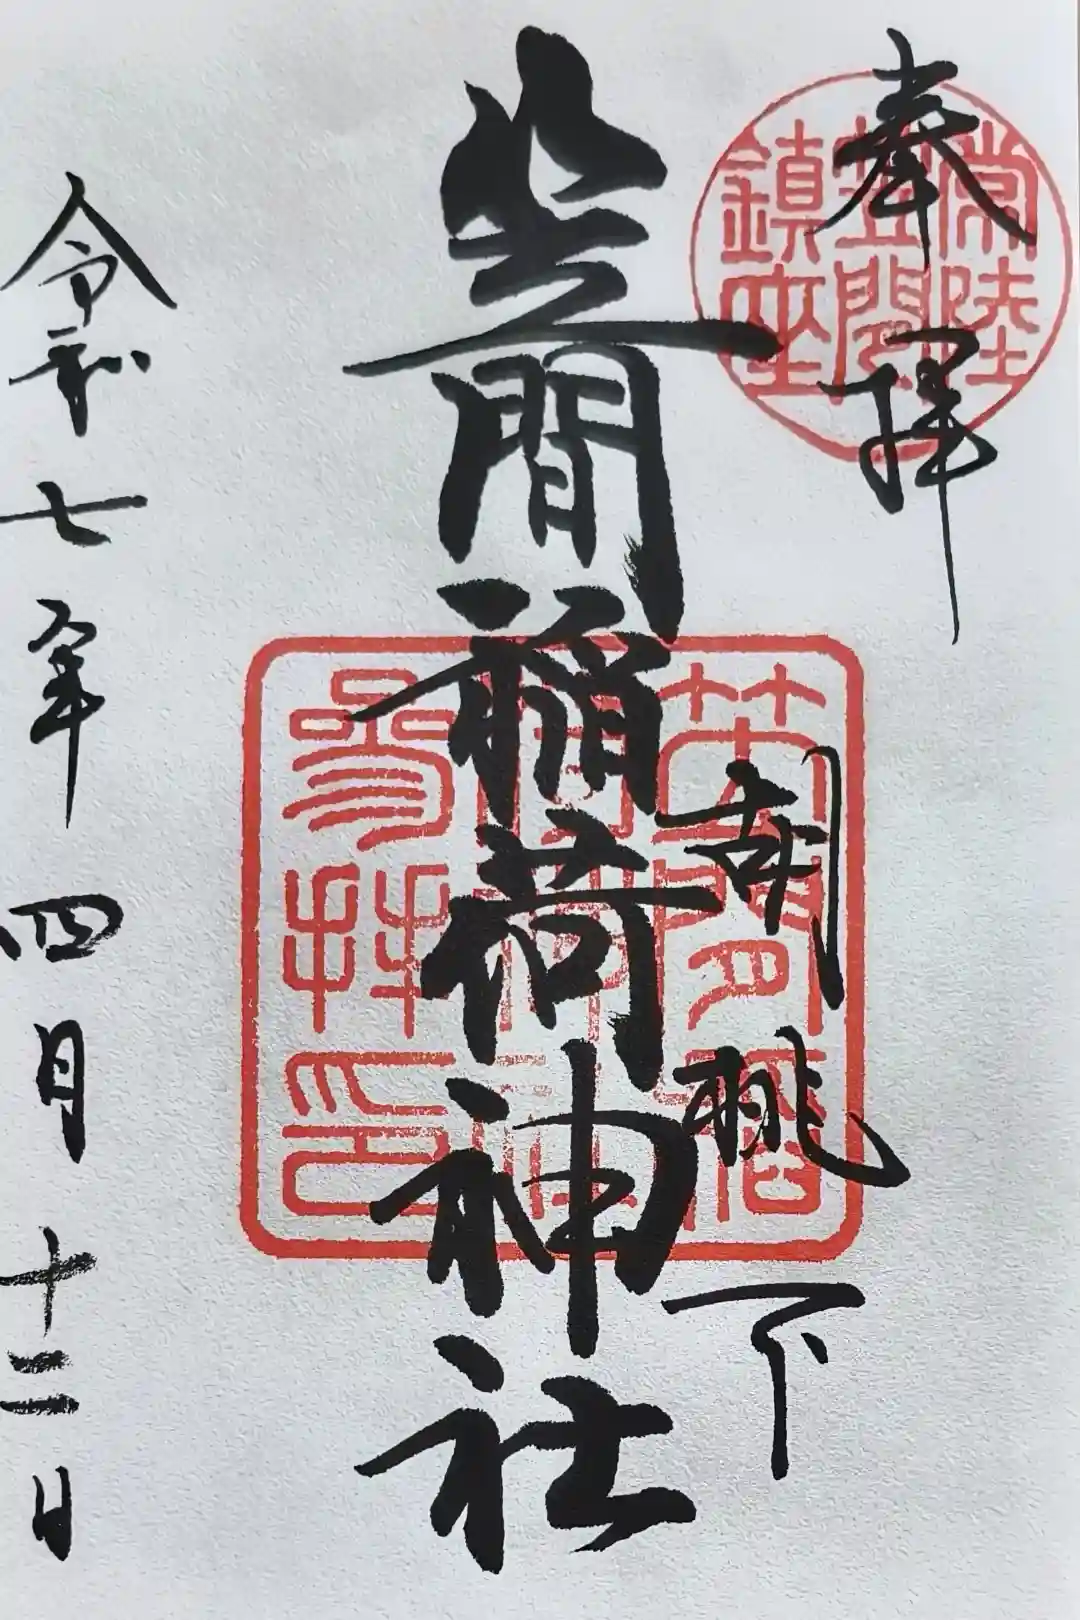 奉拝
常陸
笠間
鎮座
胡桃下
笠間稲荷神社
笠間稲
荷神社
参拝印
令和七年四月十三日